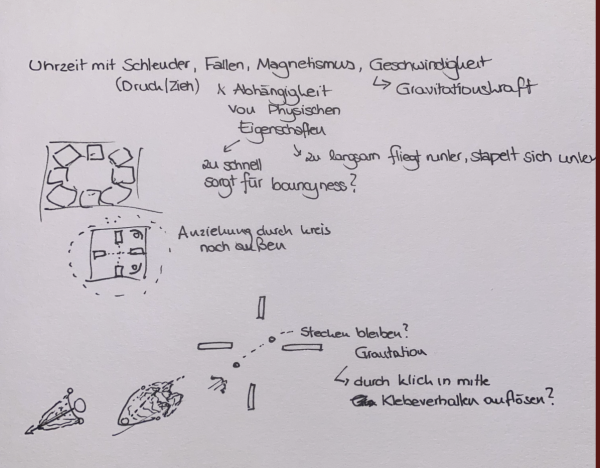 Uhrzeit mit Schleuder, Fallen, Magnetismus, Geschwindigkeit
(Druck/Zieh)
↳ Gravitationskraft
x Abhängigkeit
von Physischen
Eigenschaften
zu schnell
sorgt für bouncyness?
zu langsam fliegt runter, stapelt sich unten
Anziehung durch kreis
nach außen
Stecken bleiben?
Gravitation
↳ durch klick in mitte
Klebeverhalten auflösen?